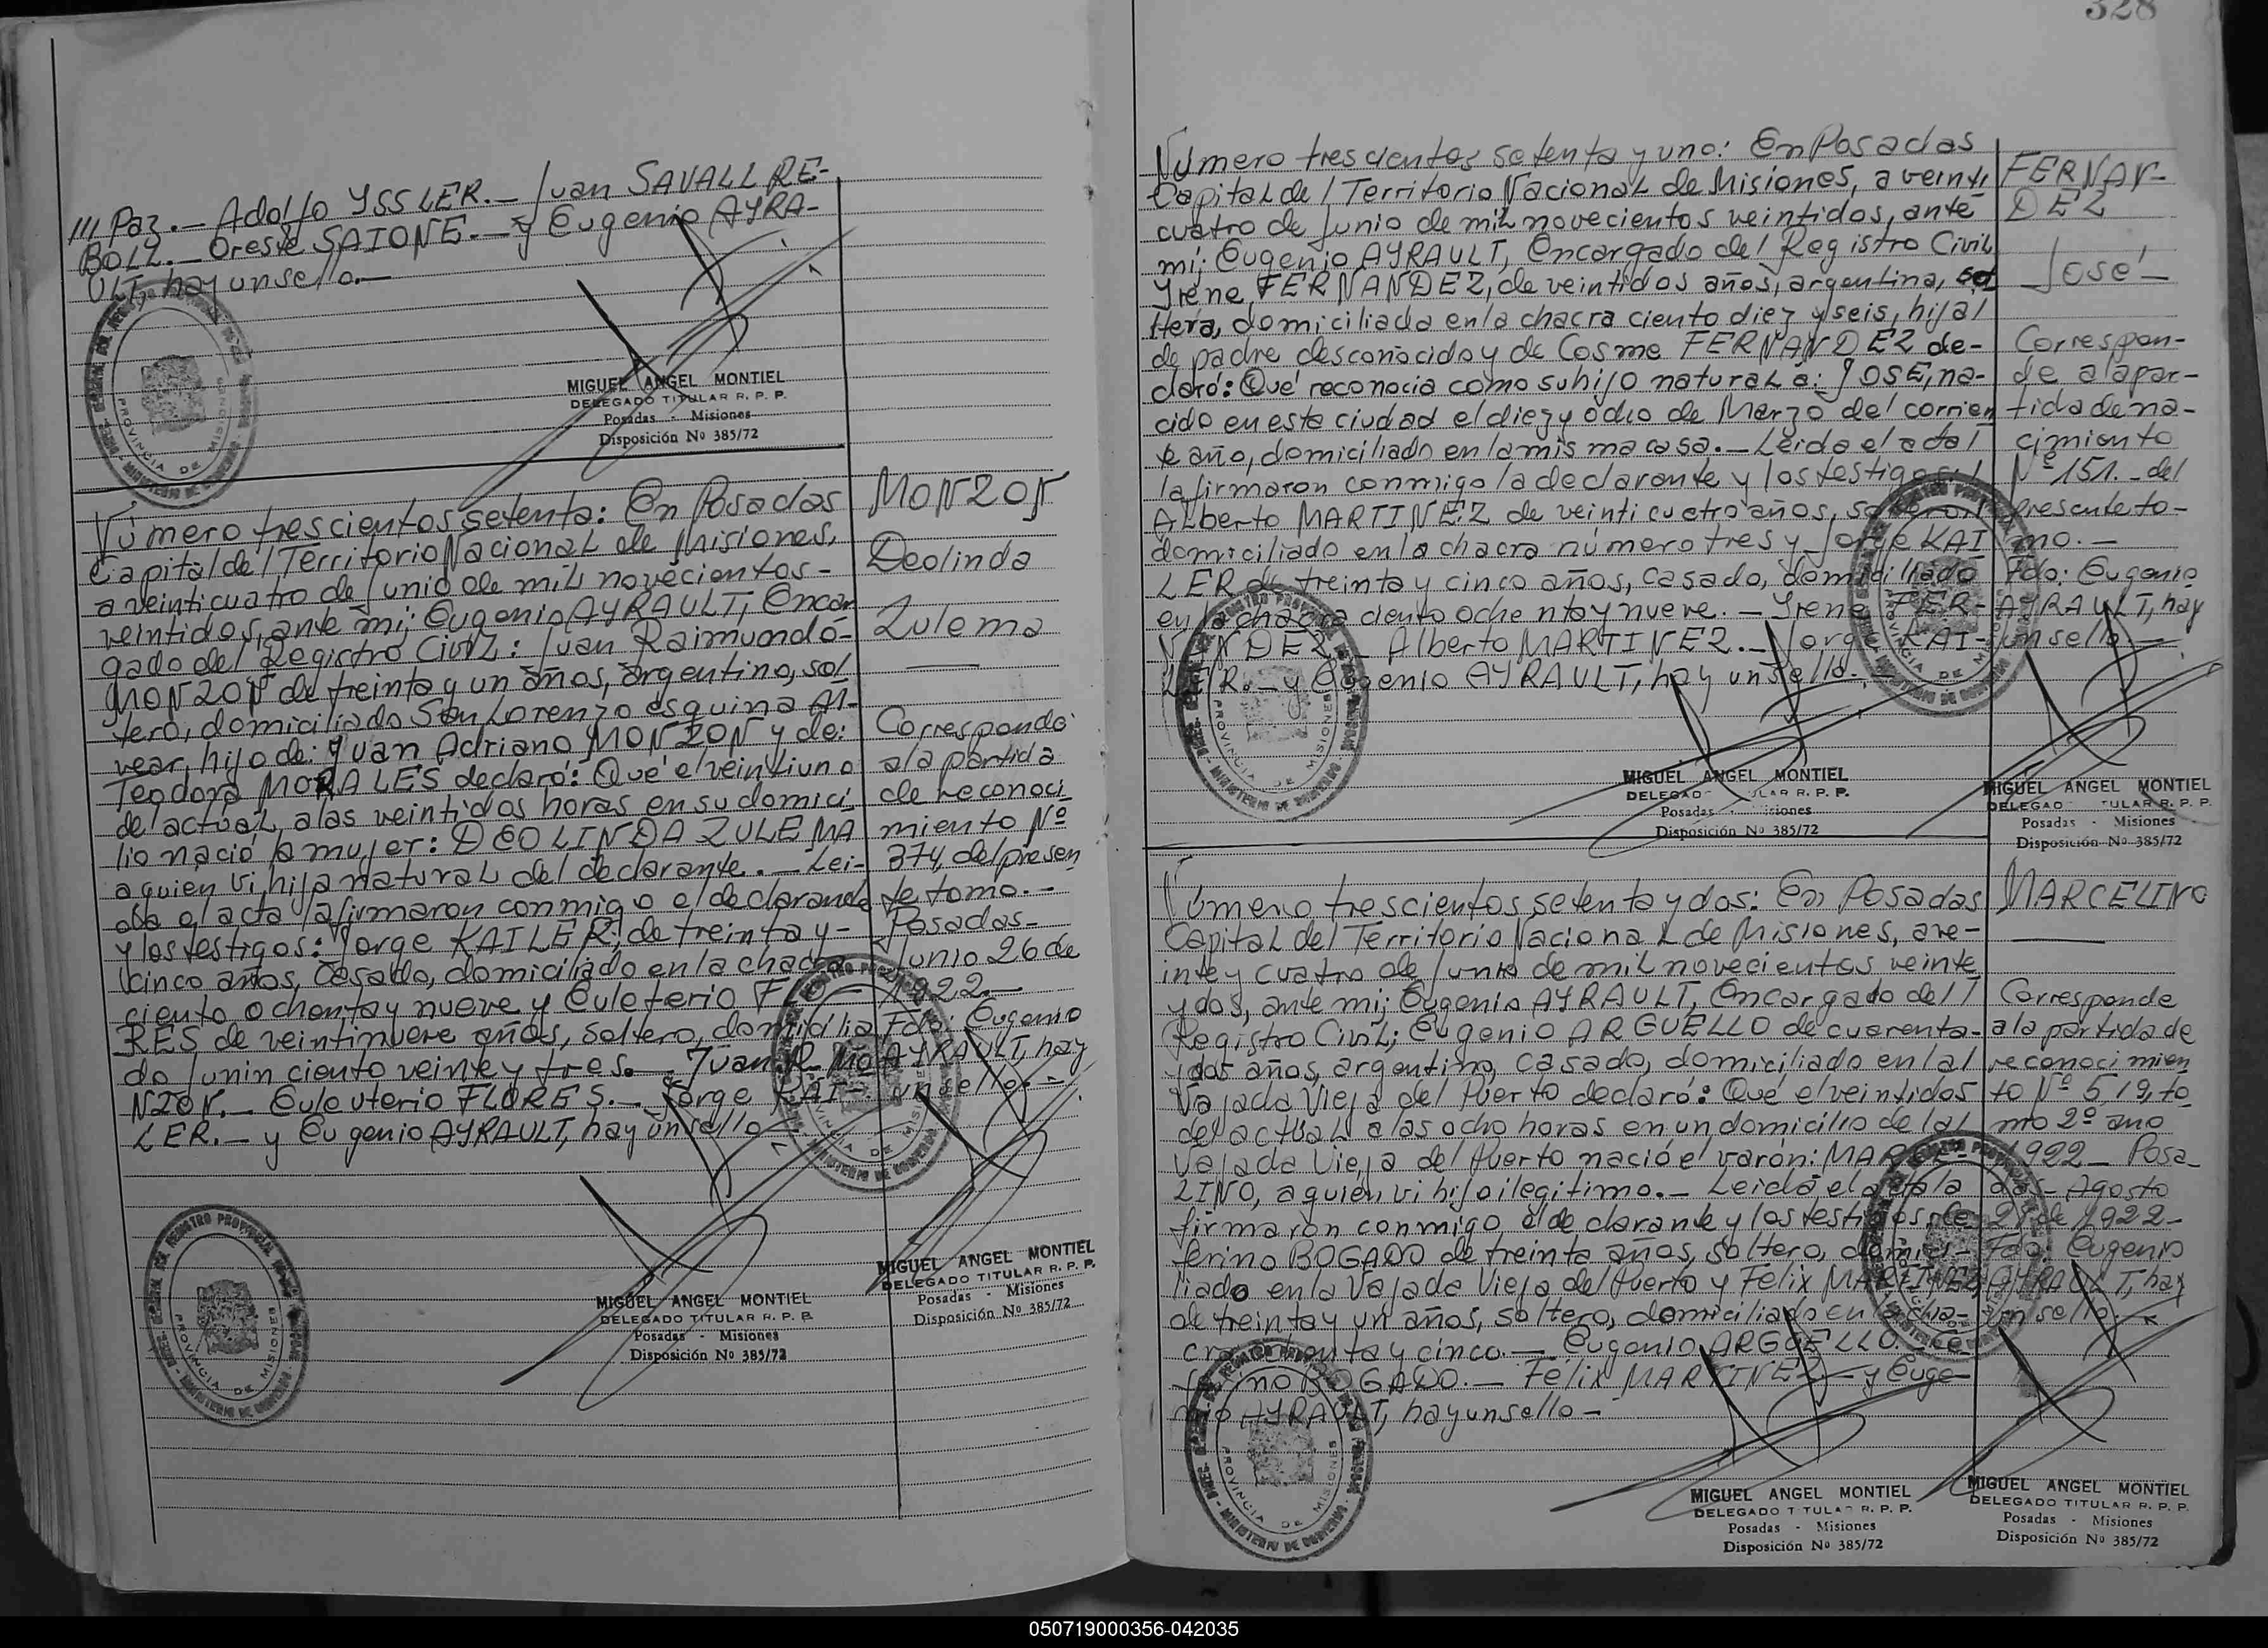 328
/// Paz.- Adolfo YSSLER.- Juan SAVALL RE-
BOLL.- Oreste SAIONE.- y Eugenio AYRA-
ULT, hay un sello.-
MIGUEL ANGEL MONTIEL
DELEGADO TITULAR R. P. P.
Posadas - Misiones
Disposición Nº 385/72
PROVINCIA DE MISIONES
Número trescientos setenta: En Posadas
Capital del Territorio Nacional de Misiones,
a veinticuatro de Junio de mil novecientos-
veintidos, ante mi; Eugenio AYRAULT, Encar
gado del Registro Civil: Juan Raimundo-
MONZON de treinta y un años, argentino, sol
tero, domiciliado San Lorenzo esquina Al-
vear, hijo de: Juan Adriano MONZON y de:
Teodora MORALES declaró: Qué el veintiuno
del actual, a las veintidos horas en su domici
lio nació la mujer: DEOLINDA ZULEMA
a quien vi, hija natural del declarante.- Lei-
da el acta la firmaron conmigo el declarante
y los testigos: Jorge KAILER, de treinta y-
cinco años, casado, domiciliado en la chacra
ciento ochenta y nueve y Euleterio FLO-
RES de veintinueve años, soltero, domicilia
do Junin ciento veinte y tres.- Juan R. MO
NZON.- Euleuterio FLORES.- Jorge KAI-
LER.- y Eugenio AYRAULT, hay un sello.-
MONZON
Deolinda
Zulema
Corresponde
a la partida
de reconoci
miento Nº
374, del presen
te tomo.-
Posadas-
Junio 26 de
1922.-
Fdo: Eugenio
AYRAULT, hay
un sello.-
MIGUEL ANGEL MONTIEL
DELEGADO TITULAR R. P. P.
Posadas - Misiones
Disposición Nº 385/72
MIGUEL ANGEL MONTIEL
DELEGADO TITULAR R. P. P.
Posadas - Misiones
Disposición Nº 385/72
PROVINCIA DE MISIONES
Número trescientos setenta y uno: En Posadas
Capital del Territorio Nacional de Misiones, a veinti
cuatro de Junio de mil novecientos veintidos, ante
mi; Eugenio AYRAULT, Encargado del Registro Civil,
Yrene FERNANDEZ, de veintidos años, argentina, sol
tera, domiciliada en la chacra ciento diez y seis, hija/
de padre desconocido y de Cosme FERNANDEZ de-
claró: Qué reconocia como su hijo natural a: JOSE, na-
cido en esta ciudad el diez y ocho de Marzo del corrien
te año, domiciliado en la misma casa.- Leida el acta/
la firmaron conmigo la declarante y los testigos:/
Alberto MARTINEZ de veinticuatro años, soltero,
domiciliado en la chacra número tres y Jorge KAI
LER de treinta y cinco años, casado, domiciliado
en la chacra ciento ochenta y nueve.- Yrene FER-
NANDEZ.- Alberto MARTINEZ.- Jorge KAI-
LER.- y Eugenio AYRAULT, hay un sello.-
FERNAN-
DEZ
José-
Correspon-
de a la par-
tida de na-
cimiento
Nº 151.- del
presente to-
mo.-
Fdo: Eugenio
AYRAULT, hay
un sello.-
MIGUEL ANGEL MONTIEL
Posadas - Misiones
Disposición Nº 385/72
MIGUEL ANGEL MONTIEL
Posadas - Misiones
Disposición Nº 385/72
PROVINCIA DE MISIONES
Número trescientos setenta y dos: En Posadas
Capital del Territorio Nacional de Misiones, a ve-
inte y cuatro de Junio de mil novecientos veinte
y dos, ante mi; Eugenio AYRAULT, Encargado del/
Registro Civil; Eugenio ARGUELLO de cuarenta-
y dos años, argentino, casado, domiciliado en la/
Vajada Vieja del Puerto declaró: Qué el veintidos
del actual a las ocho horas en un domicilio de la/
Vajada Vieja del Puerto nació el varón: MARCE-
LINO, a quién vi hijo ilegitimo.- Leida el acta la
firmaron conmigo el declarante y los testigos: Ce-
ferino BOGADO de treinta años, soltero, domici-
liado en la Vajada Vieja del Puerto y Felix MARTINEZ
de treinta y un años, soltero, domiciliado en la cha-
cra y cinco.- Eugenio ARGUELLO.- Ce-
ferino BOGADO.- Félix MARTINEZ.- y Euge-
nio AYRAULT, hay un sello-
MARCELINO
Corresponde
a la partida de
reconocimien
to Nº 519, to
mo 2º año
1922- Posa-
das- Agosto
de 1922-
Fdo: Eugenio
AYRAULT, hay
un sello.-
MIGUEL ANGEL MONTIEL
DELEGADO TITULAR R. P. P.
Posadas - Misiones
Disposición Nº 385/72
MIGUEL ANGEL MONTIEL
DELEGADO TITULAR R. P. P.
Posadas - Misiones
Disposición Nº 385/72
PROVINCIA DE MISIONES
050719000356-042035